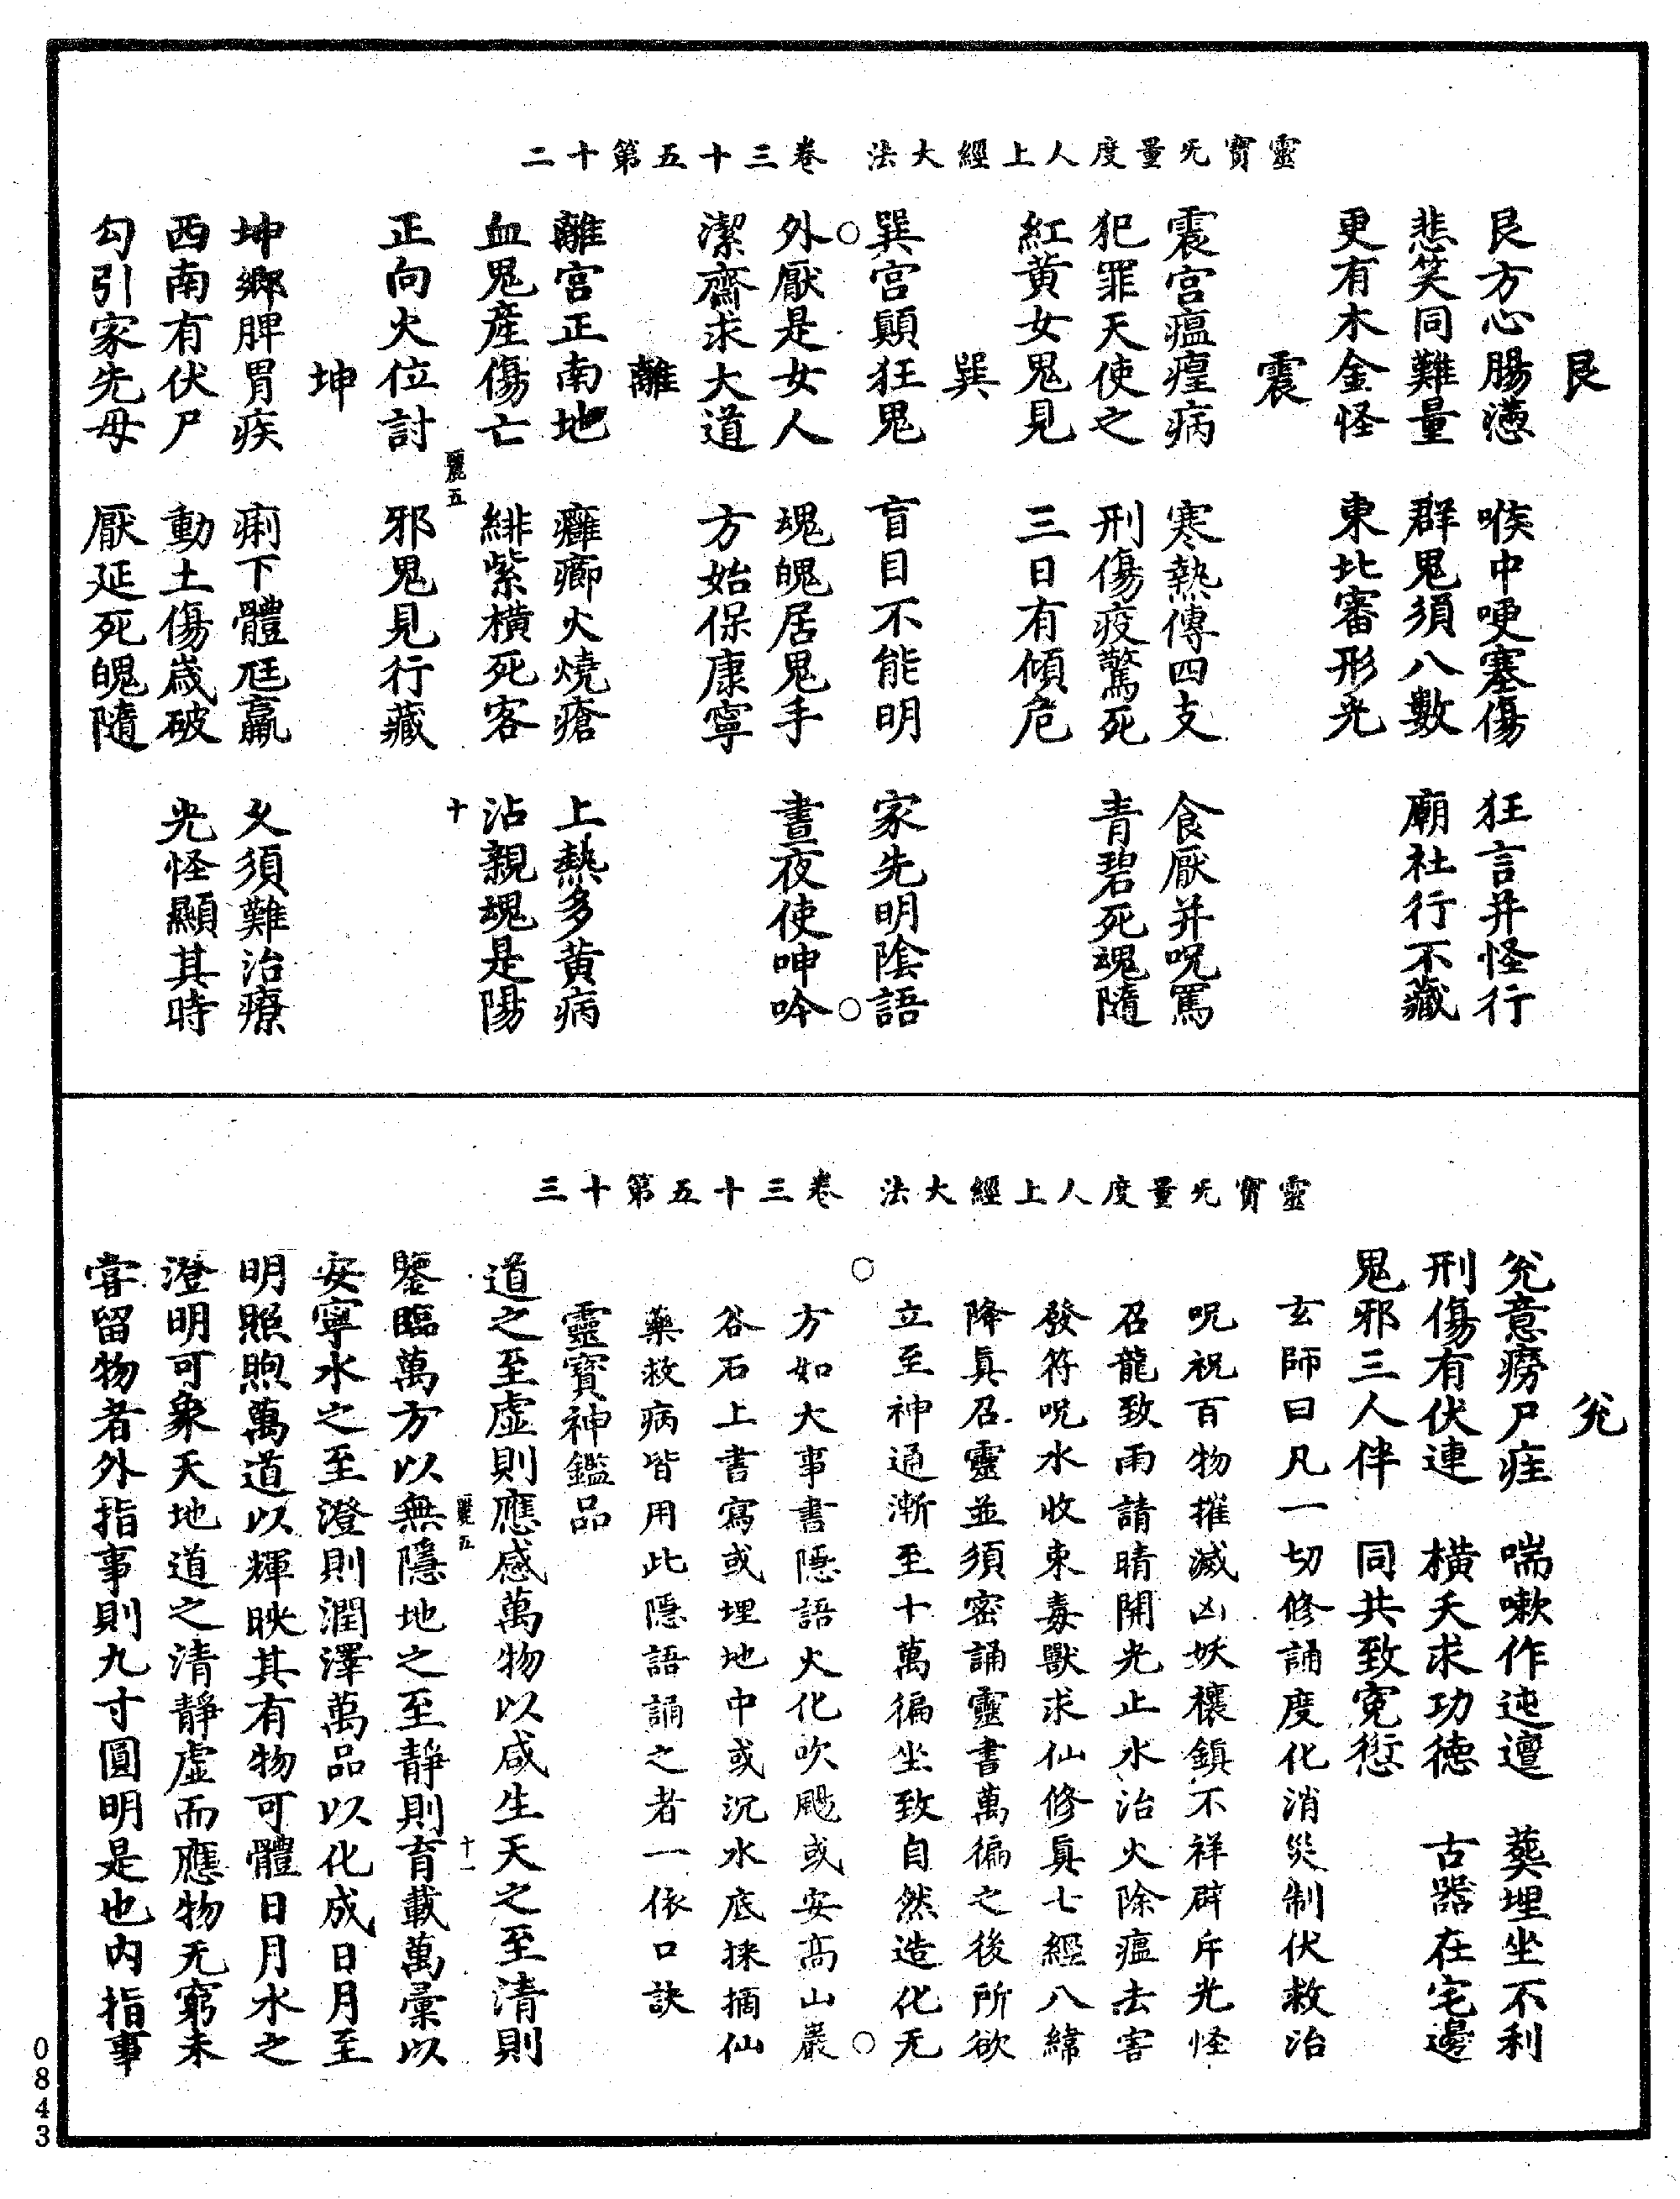 靈寶旡量度人上經大法 卷三十五第十二
艮
艮方心腸懣 喉中哽塞傷 狂言并怪行
悲笑同難量 群鬼須八數 廟社行不藏
更有木金怪 東北審形光
震
震宫瘟㾮病 寒熱傳四支 食厭并呪罵
犯罪天使之 刑傷疫驚死 青碧死魂隨
紅黄女鬼見 三日有傾危
巽
巽宫顛狂鬼 盲目不能明 家先明陰語
外厭是女人 魂魄居鬼手 晝夜使呻吟
潔齋求大道 方始保康寧
離
離宫正南地 癰癤火燒瘡 上熱多黄病
血鬼産傷亡 緋紫横死客 沾親魂是陽
麗五 十
正向火位討 邪鬼見行藏
坤
坤鄉脾胃疾 痢下體尫羸 久須難治療
西南有伏尸 動土傷歲破 光怪顯其時
勾引家先母 厭延死魄隨
靈寶旡量度人上經大法 卷三十五第十三
兊
兊意癆尸疰 喘嗽作迍邅 葬埋坐不利
刑傷有伏連 横夭求功德 古器在宅邊
鬼邪三人伴 同共致寃愆
玄師曰凡一切修誦度化消災制伏救治
呪祝百物摧滅凶妖禳鎮不祥辟斥光怪
召龍致雨請晴開光止水治火除瘟去害
發符呪水收束毒獸求仙修真七經八緯
降真召靈並須密誦靈書萬徧之後所欲
立至神通漸至十萬徧坐致自然造化无
方如大事書隱語火化吹颺或安高山巖
谷石上書寫或埋地中或沉水底採摘仙
藥救病皆用此隱語誦之者一依口訣
靈寶神鑑品
道之至虚則應感萬物以咸生天之至清則
麗五 十一
鑒臨萬方以無隱地之至靜則育載萬彙以
安寧水之至澄則潤澤萬品以化成日月至
明照煦萬道以輝映其有物可體日月水之
澄明可象天地道之清靜虚而應物无窮未
甞留物者外指事則九寸圓明是也内指事
0843